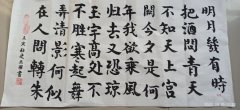 明月幾有時
把酒問青天
不知天上宮
闕今夕是何
年我欲乘風
歸去又恐
玉宇高處不
胜寒起舞
弄清影何似
在人間轉朱